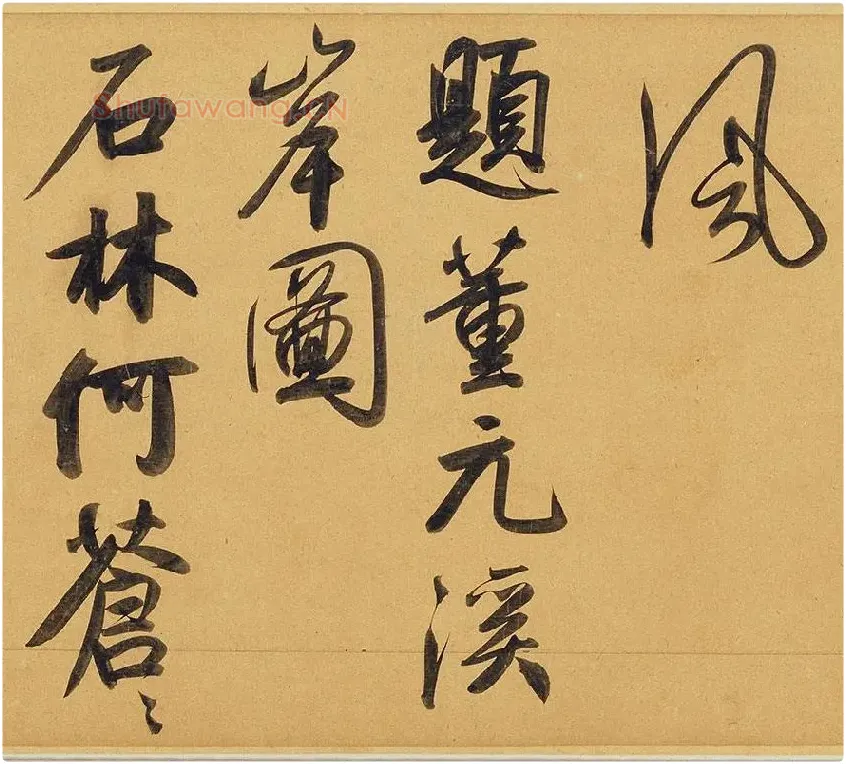 風
題董元溪
岸圖
石林何蒼〻
Shufawang.cN